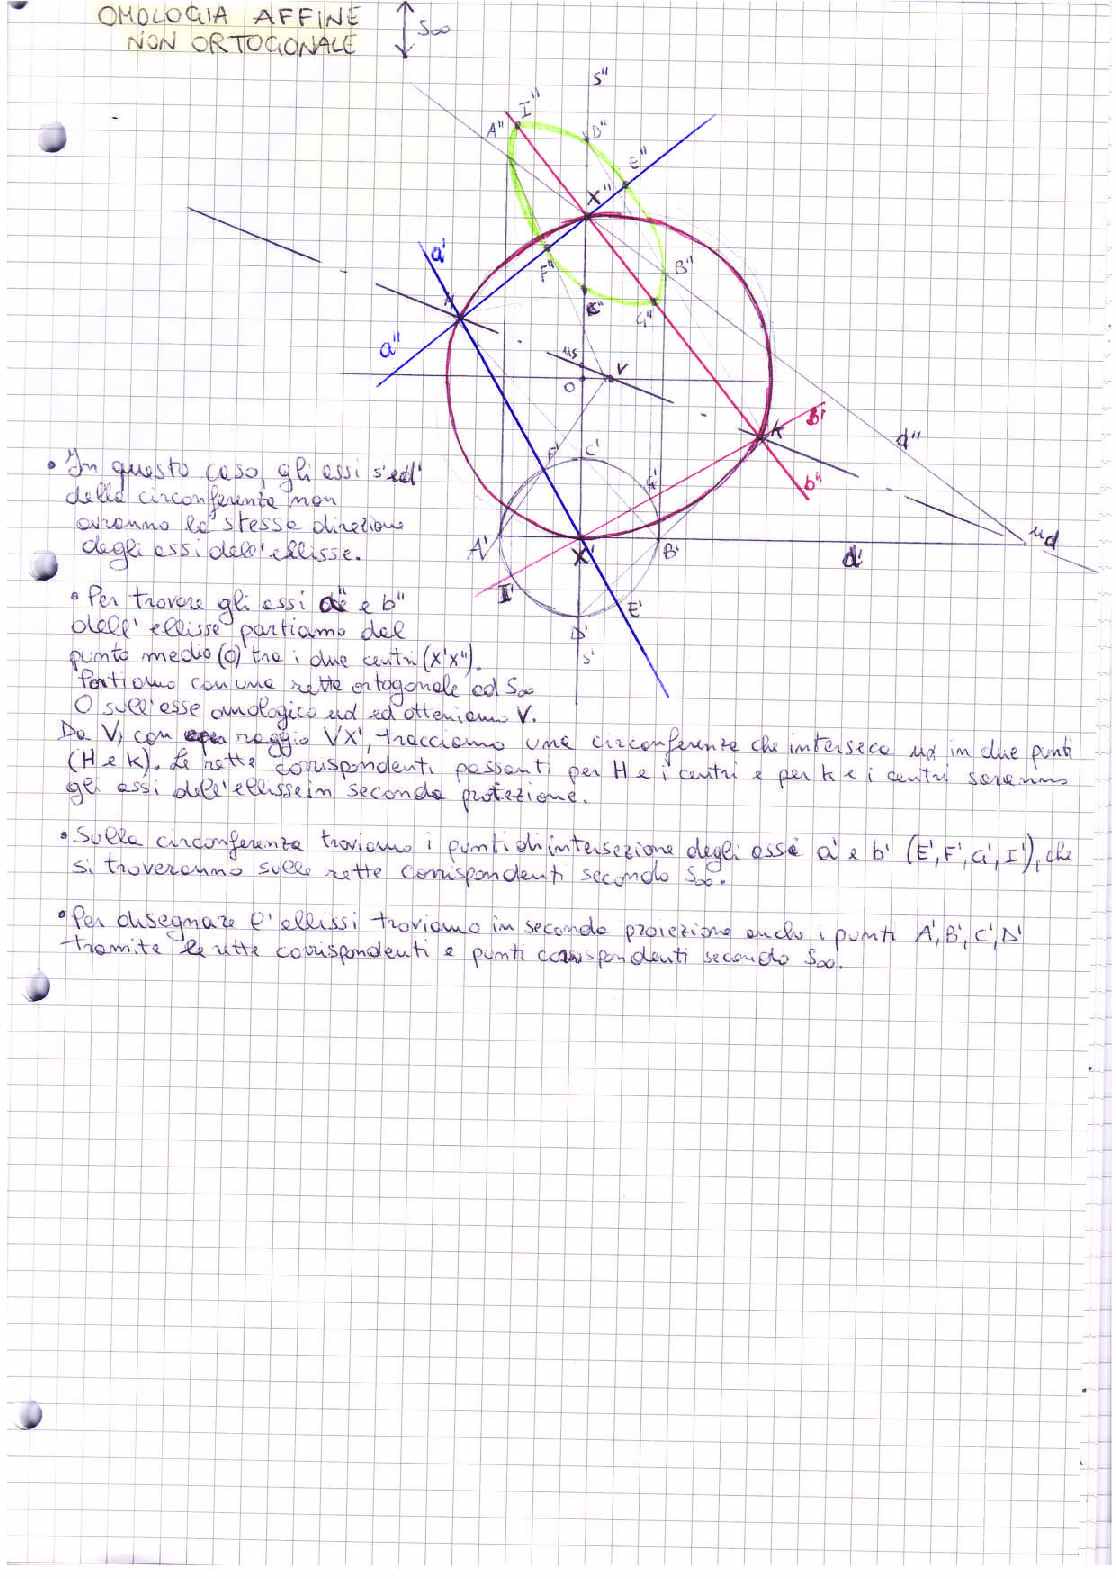 OMOLOGIA AFFINE
NON ORTOGONALE
S∞
s"
I"
A"
D"
E"
X"
a'
F"
B"
C"
G"
H
a"
us
V
O
K
B'
d"
b"
F'
C'
G'
ud
A'
X'
B'
d'
I'
E'
D'
s'
• In questo caso, gli assi s'ed'
della circonferenza non
avranno la stessa direzione
degli assi dell'ellisse.
• Per trovare gli assi a" e b"
dell'ellisse partiamo dal
punto medio (O) tra i due centri (X'X").
Partiamo con una retta ortogonale ad S∞
O sull'asse omologico ud ed otteniamo V.
Da V, con raggio VX', tracciamo una circonferenza che interseca ux in due punti
(H e K). Le rette corrispondenti passanti per H e i centri e per K e i centri saranno
gli assi dell'ellisse in seconda proiezione.
• Sulla circonferenza troviamo i punti di intersezione degli assi a' e b' (E', F', G', I'), che
si troveranno sulle rette corrispondenti secondo S∞.
• Per disegnare l'ellissi troviamo in seconda proiezione anche i punti A', B', C', D'
tramite le rette corrispondenti e punti corrispondenti secondo S∞.